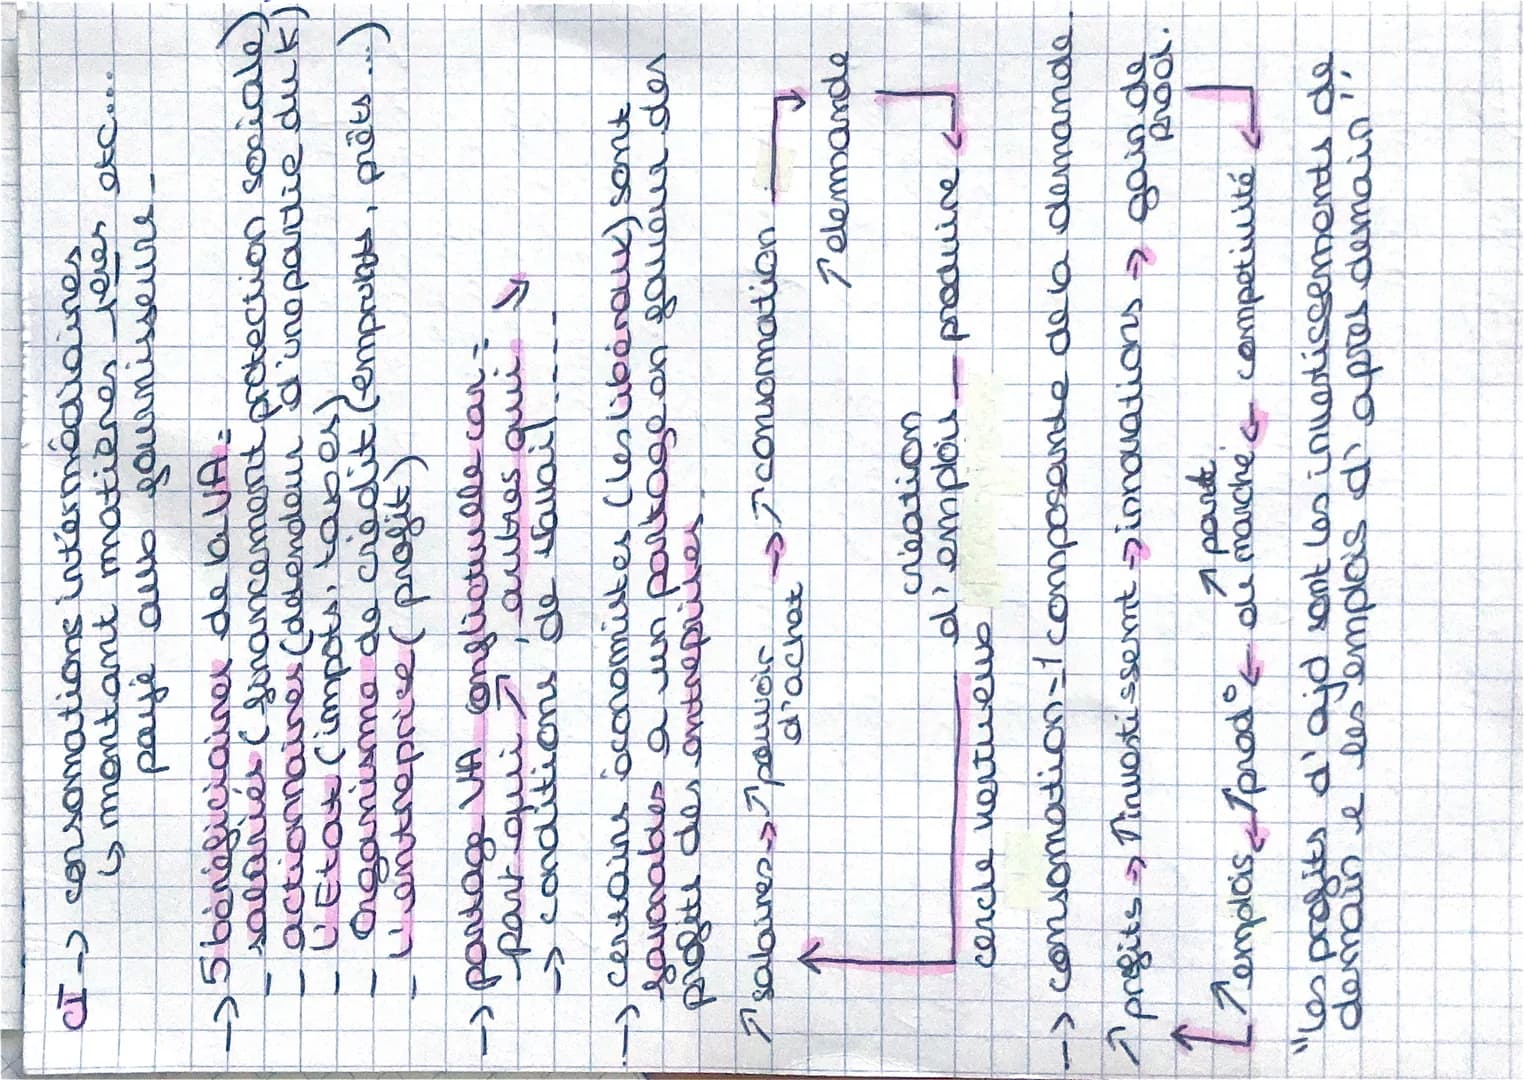 CI → consomations intermédiaires
↳ montant matières 1ères etc...
payé aux fournisseurs -
→ 5 bénéficiaires de la VA :
- salariés (financement protection sociale)
- actionnaires (détendeur d'une partie du K)
- L'Etat (impots, taxes)
- Organisme de crédit (emprunts, prêts...)
- L'entreprise (profit)
→ partage VA conflictuelle car :
- part qui ↗, autres qui ↘
→ conditions de travail ....
→ certains économistes (les libéraux) sont
favorables a un partage en faveur des
profits des entreprises.
↗ salaires → ↗ pouvoir d'achat → ↗ consomation
↗ demande
création
d'emplois — produire
cercle vertueux
→ consomation = 1 composante de la demande.
↗ profits → ↑ investissemt → innovations → gain de
prod.
↗ emplois ← ↗ prod° ← ↗ part du marché ← competitivité
"Les profits d'ajd sont les investissements de
demain e les emplois d'apres demain"